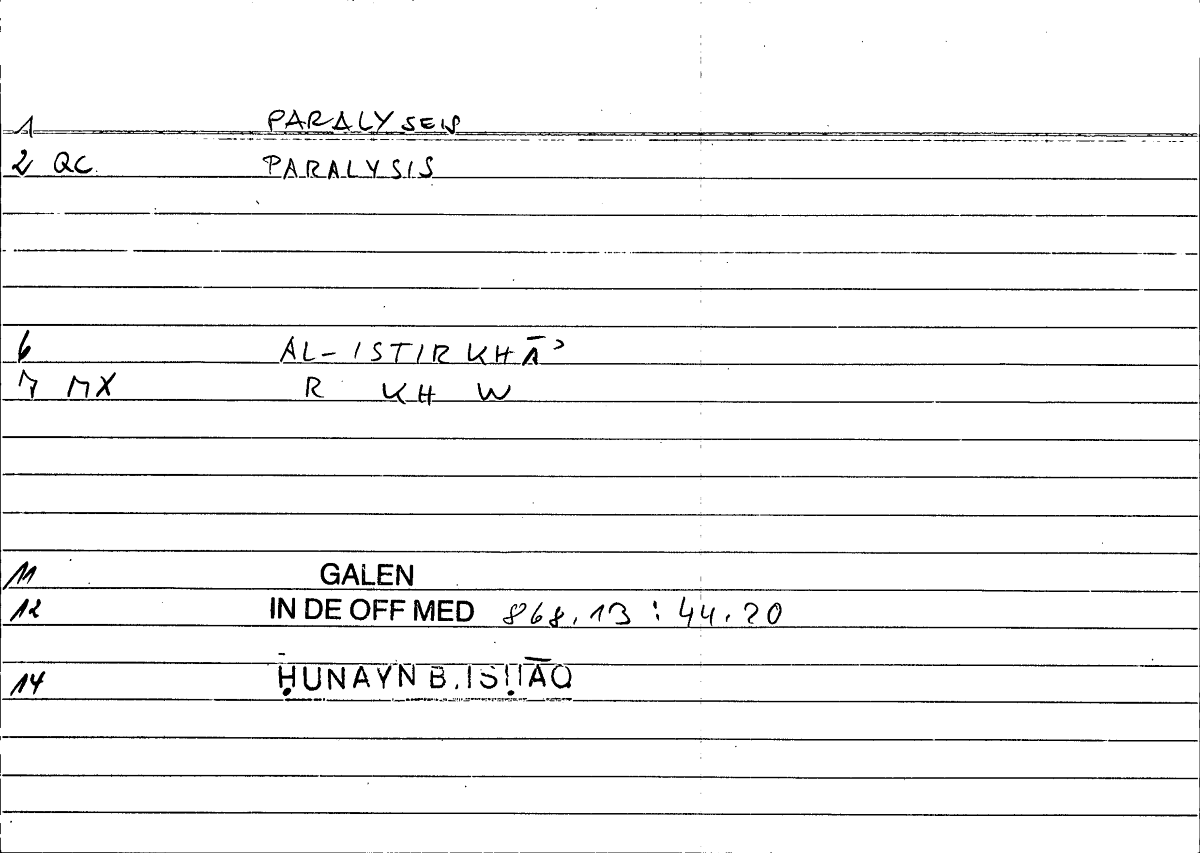 1 PARALYSEIS
2 QC PARALYSIS
6 AL-ISTIRKHĀʾ
7 MX R KH W
11 GALEN
12 IN DE OFF MED 868.13 : 44.20
14 ḤUNAYN B. ISḤĀQ